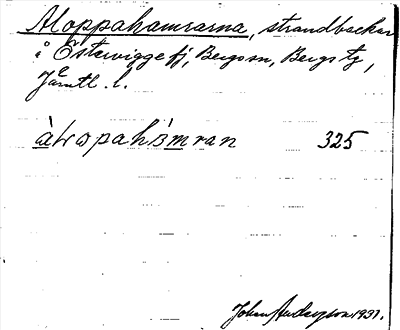 Aloppahamrarna, strandbackar
å Östervigge fj, Bergs sn, Bergs tg,
Jämtl. l.
àtropahòmran 325
Johan Anderson 1937.